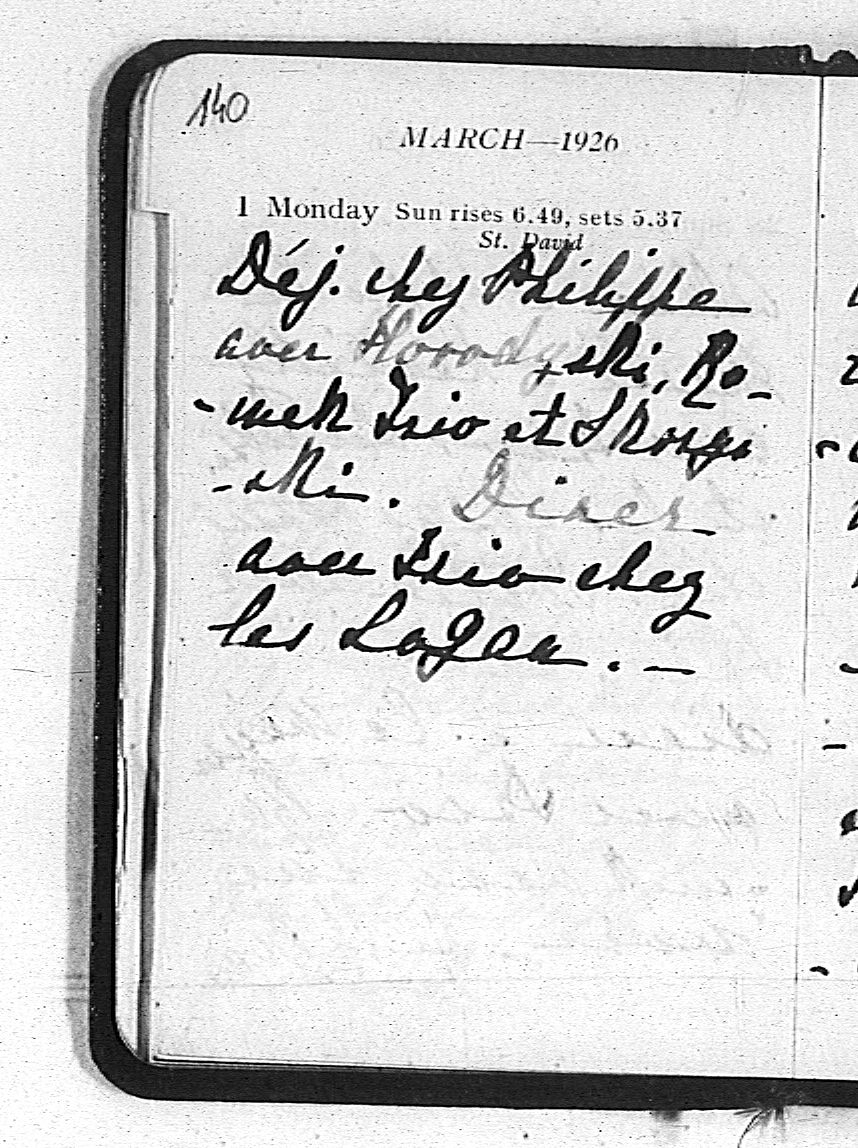 140
MARCH—1926
1 Monday Sun rises 6.49, sets 5.37
St. David
Déj. chez Philippe
avec Horodyski, Ro-
-mek Frio et
-ski. Diner
avec Frio chez
les